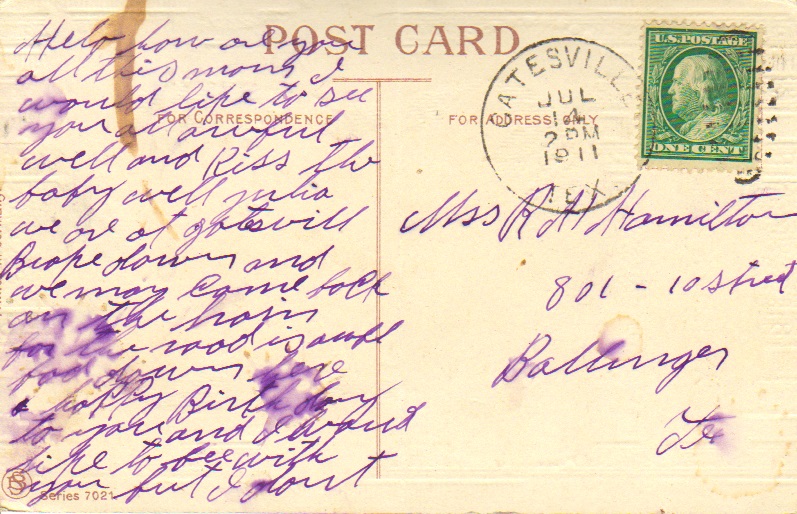 POST CARD
FOR CORRESPONDENCE
FOR ADDRESS ONLY
Helo how are you
all this morn I
would like to see
you all awful
well and Kiss the
baby well julia
we are at gatesvill
Broke down and
we may come back
on the train
for the road is awful
bad down here
a happy Birthday
to you and I would
like to bee with
you but I dont
Series 7021
GATESVILLE
JUL
14
2 PM
1911
TEX.
U.S. POSTAGE
ONE CENT
Mss R H Hamilton
801 - 10 Street
Ballinger